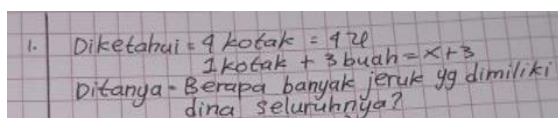 1. Diketahui = 4 kotak = 4x
1 kotak + 3 buah = x+3
Ditanya = Berapa banyak jeruk yg dimiliki
dina seluruhnya?